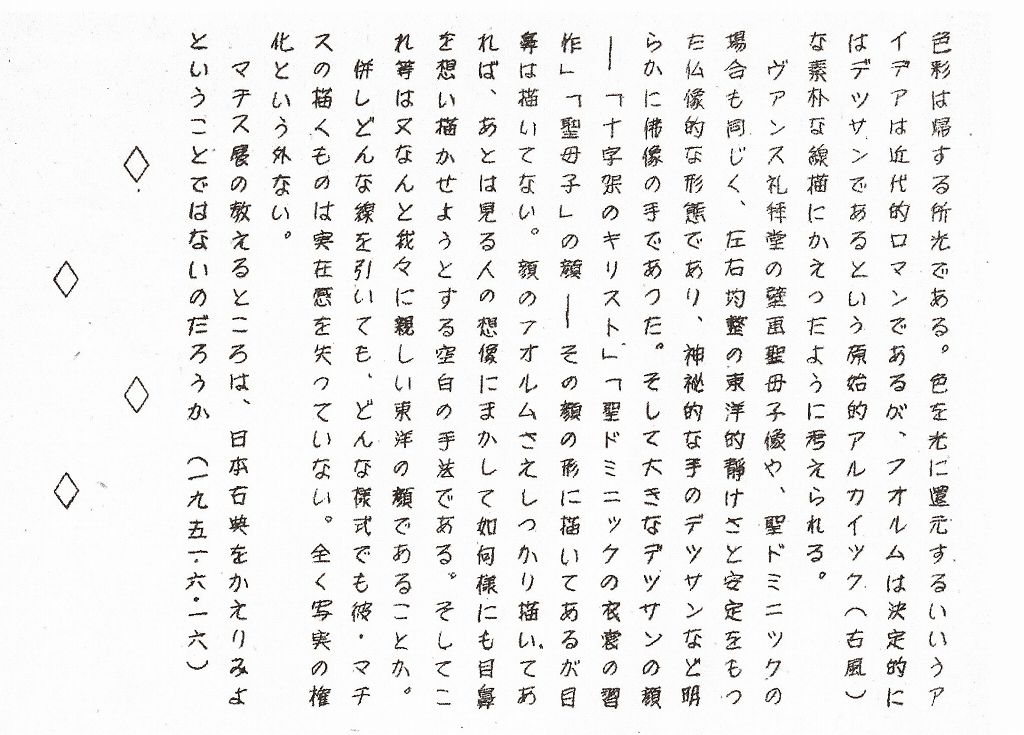 色彩は帰する所光である。色を光に還元するいいうア
イデアは近代的ロマンであるが、フオルムは決定的に
はデツサンであるという原始的アルカイツク（古風）
な素朴な線描にかえつたように考えられる。
　ヴァンス礼拝堂の壁画聖母子像や、聖ドミニツクの
場合も同じく、左右均整の東洋的静けさと安定をもつ
た仏像的な形態であり、神祕的な手のデツサンなど明
らかに佛像の手であつた。そして大きなデツサンの顔
―「十字架のキリスト」「聖ドミニックの衣裳の習
作」「聖母子」の顔―その顔の形に描いてあるが目
鼻は描いてない。顔のフオルムさえしつかり描いてあ
れば、あとは見る人の想像にまかして如何様にも目鼻
を想い描かせようとする空白の手法である。そしてこ
れ等は又なんと我々に親しい東洋の顔であることか。
　併しどんな線を引いても、どんな様式でも彼・マチ
スの描くものは実在感を失つていない。全く写実の権
化という外ない。
　マチス展の教えるところは、日本古典をかえりみよ
ということではないのだろうか　（一九五一・六・一六）